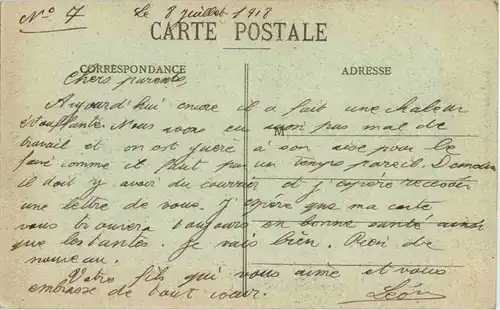 N° 7
Le 8 juillet 1918
CARTE POSTALE
CORRESPONDANCE
ADRESSE
Chers parents,
Aujourd'hui encore il a fait une chaleur
étouffante. Nous avons eu pas mal de
M
travail et on est guère à son aise pour le
faire comme il faut par un temps pareil. Demain
il doit y avoir du courrier et j'espère recevoir
une lettre de vous. J'espère que ma carte
vous trouvera toujours en bonne santé ainsi
que les tantes. Je vais bien. Rien de
nouveau.
Votre fils qui vous aime et vous
embrasse de tout cœur.
Léon